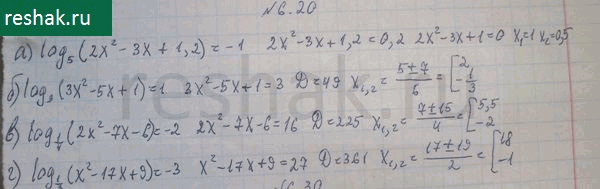 reshak.ru
№6.20
а) log₅(2x²-3x+1,2)=-1 2x²-3x+1,2=0,2 2x²-3x+1=0 x₁=1 x₂=0,5
б) log₃(3x²-5x+1)=1 3x²-5x+1=3 D=49 x₁,₂=(5±7)/6=[2, -1/3
в) log₁/₄(2x²-7x-6)=-2 2x²-7x-6=16 D=225 x₁,₂=(7±15)/4=[5,5 -2
г) log₁/₃(x²-17x+9)=-3 x²-17x+9=27 D=361 x₁,₂=(17±19)/2=[18 -1
reshak.ru